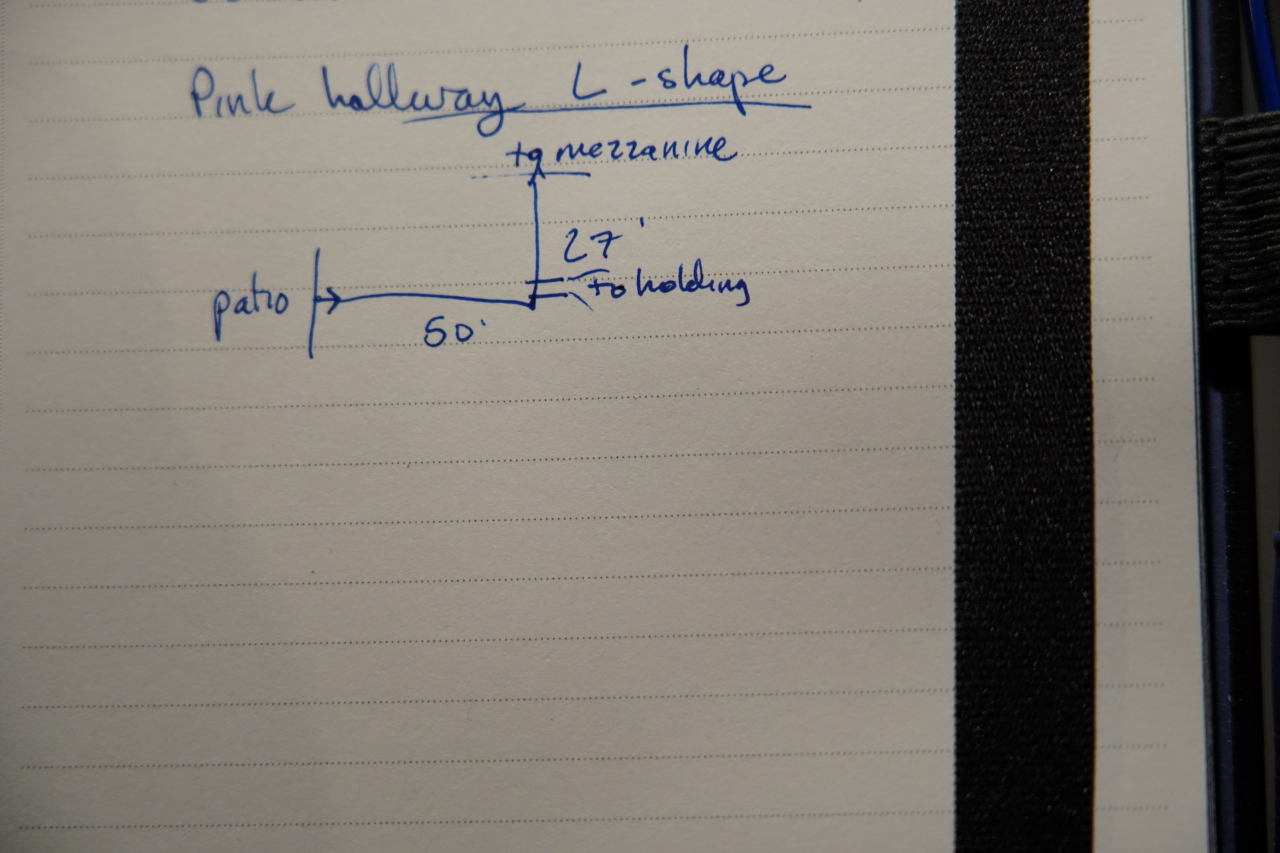 Pink hallway L-shape
to mezzanine
27'
patio
to holding
50'